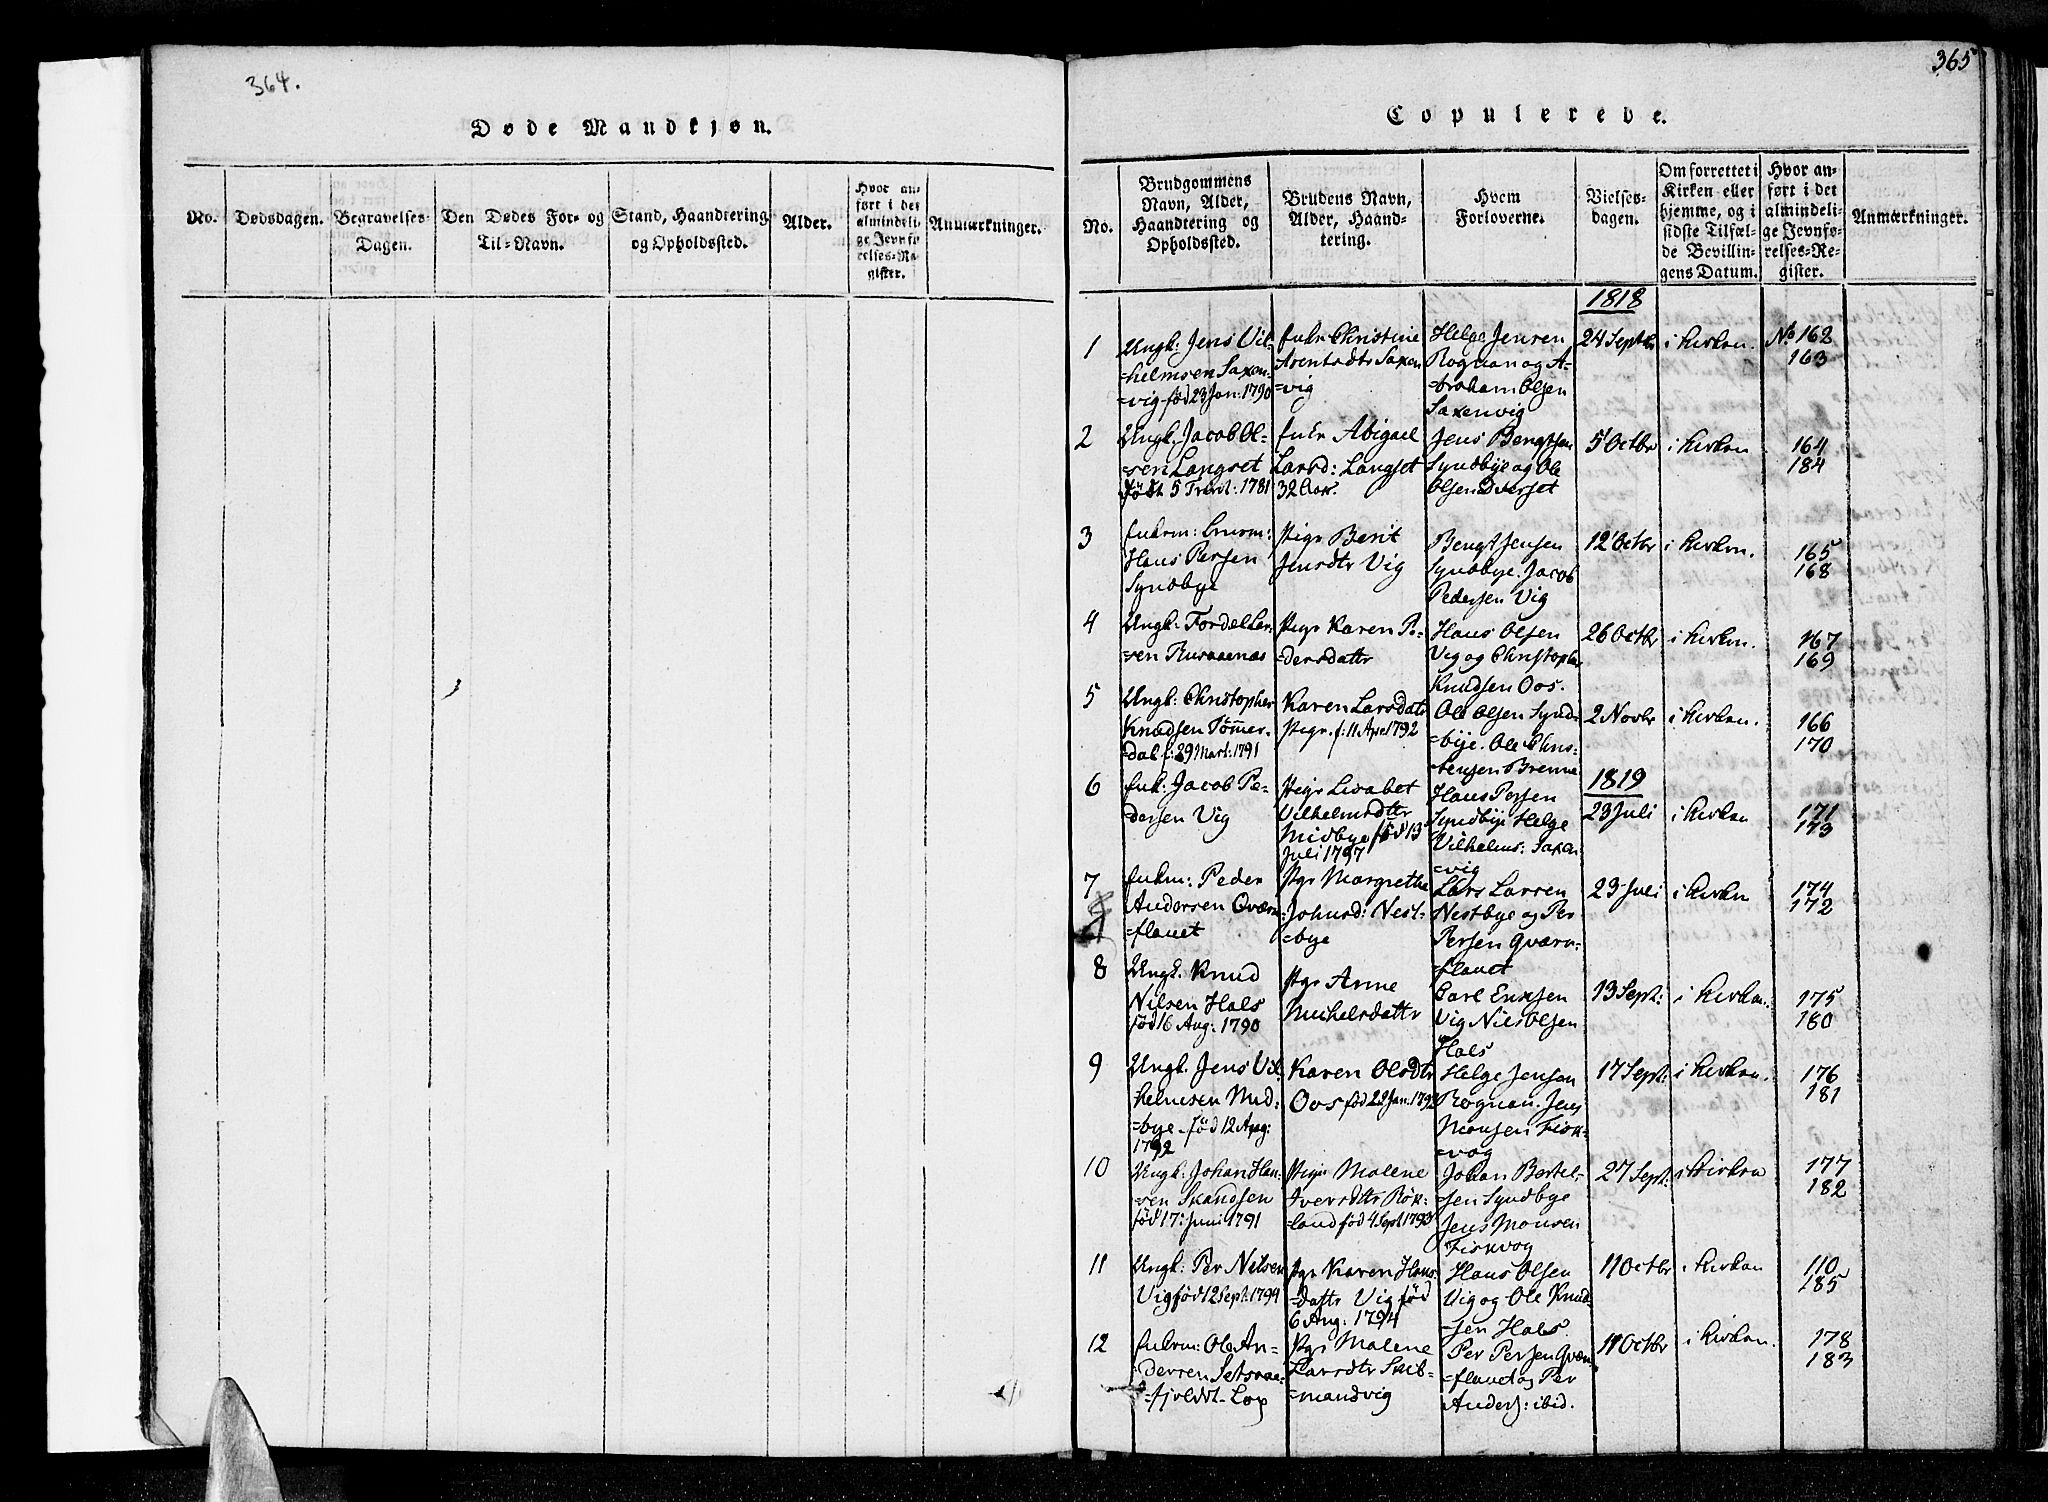 364.
Døde Mandkjøn.
No.
Dødsdagen.
Begravelses-
Dagen.
Den Dødes For- og
Til-Navn.
Stand, Haandtering
og Opholdssted.
Alder.
Hvor an-
ført i det
almindeli-
ge Jevnfø-
relses-Re-
gister.
Anmærkninger.
365
Copulerede.
No.
Brudgommens
Navn, Alder,
Haandtering og
Opholdssted.
Brudens Navn,
Alder, Haand-
tering.
Hvem
Forloverne.
Vielses-
dagen.
Om forrettet i
Kirken eller
hjemme, og i
sidste Tilfæl-
de Bevillin-
gens Datum.
Hvor an-
ført i det
almindeli-
ge Jevnfø-
relses-Re-
gister.
Anmærkninger.
1818
1
Ungk: Jens Vil-
=helmsen Saxen-
=vig fød 23 Jan: 1790
Enke Christine
Arentsdtr Saxen
=vig
Helge Jensen
Rognan og A-
=braham Olsen
Saxenvig
24 Septbr
i Kirken.
No 162
163
2
Ungk. Jacob Ol-
=sen Langset
født 5 1781
Enke Abigael
Larsd: Langset
32 Aar.
Jens Bengtsen
Syndbye og Ole
Olsen Dverset
5 Octbr
i Kirken
164
184
3
Enkem:
Hans Persen
Syndbye
Pige Berit
Jensdtr Vig
Bengt Jensen
Syndbye. Jacob
Pedersen Vig
12 Octbr
i Kirken.
165
168
4
Ungk:
=sen
Pige Karen Pe-
=dersdattr
Hans Olsen
Vig og Christopher
Knudsen Oos.
26 Octbr
i Kirken.
167
169
5
Ungk: Christopher
Knudsen Tømer-
=dal f: 29 Mart: 1791
Karen Larsdatr
Pige. f: 11 Apr 1792
Ole Olsen Synd-
=bye. Ole Chris-
=tensen Brenne
2 Novbr
i Kirken.
166
170
1819
6
Enk: Jacob Pe-
dersen Vig
Pige Lisabet
Vilhelmsdttr
Midbye fød 13
Juli 1797
Hans Persen
Syndbye Helge
Vilhelms: Saxen
=vig
23 Juli
i Kirken
171
173
7
Enkm: Peder
Andersen Qværn
=flauet
Pge Margrethe
Johnsd: Nest-
=bye
Lars Larsen
Nestbye og Per
Persen Qværn-
=flauet
23 Juli
i Kirken
174
172
8
Ungk. Knud
Nilsen Hals
fød 16 Aug: 1790
Pge Anne
Michelsdattr
Carl Ensen
Vig Niels Olsen
Hals
13 Sept:
i Kirken.
175
180
9
Ungk. Jens Vil-
helmsen Mid-
=bye. fød 12 Aug:
1792
Karen Olsdtr
Oos fød 29 Jan: 1792
Helge Jensen
Rognan. Jens
Monsen Fisk-
=vog
17 Sept:
i Kirken.
176
181
10
Ungk: Johan Han-
=sen Skansen
fød 17: Juni 1791
Pige Malene
Iversdttr Røk-
=land fød 4 Sept 1793
Johan Bertel-
sen Syndbye
Jens Monsen
Fiskvog
27 Sept:
i Kirken
177
182
11
Ungk: Per Nilsen
Vig fød 12 Sept: 1794
Pge Karen Hans-
=dattr Vig fød
6 Aug: 1794
Hans Olsen
Vig og Ole Knud-
=sen Hals.
11 Octbr
i Kirken
110
185
12
Enkem: Ole An-
dersen Setsaae-
=fjeldet
Pge Malene
Larsdtr Skib-
=mandvig
Per Persen Qværn
=flauet og Per
Anders: ibid.
11 Octbr
i Kirken.
178
183